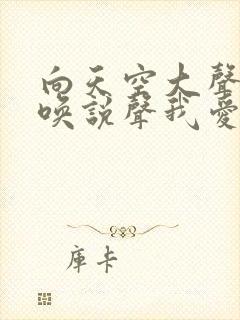 向天空大聲
喚說聲我愛
庫卡